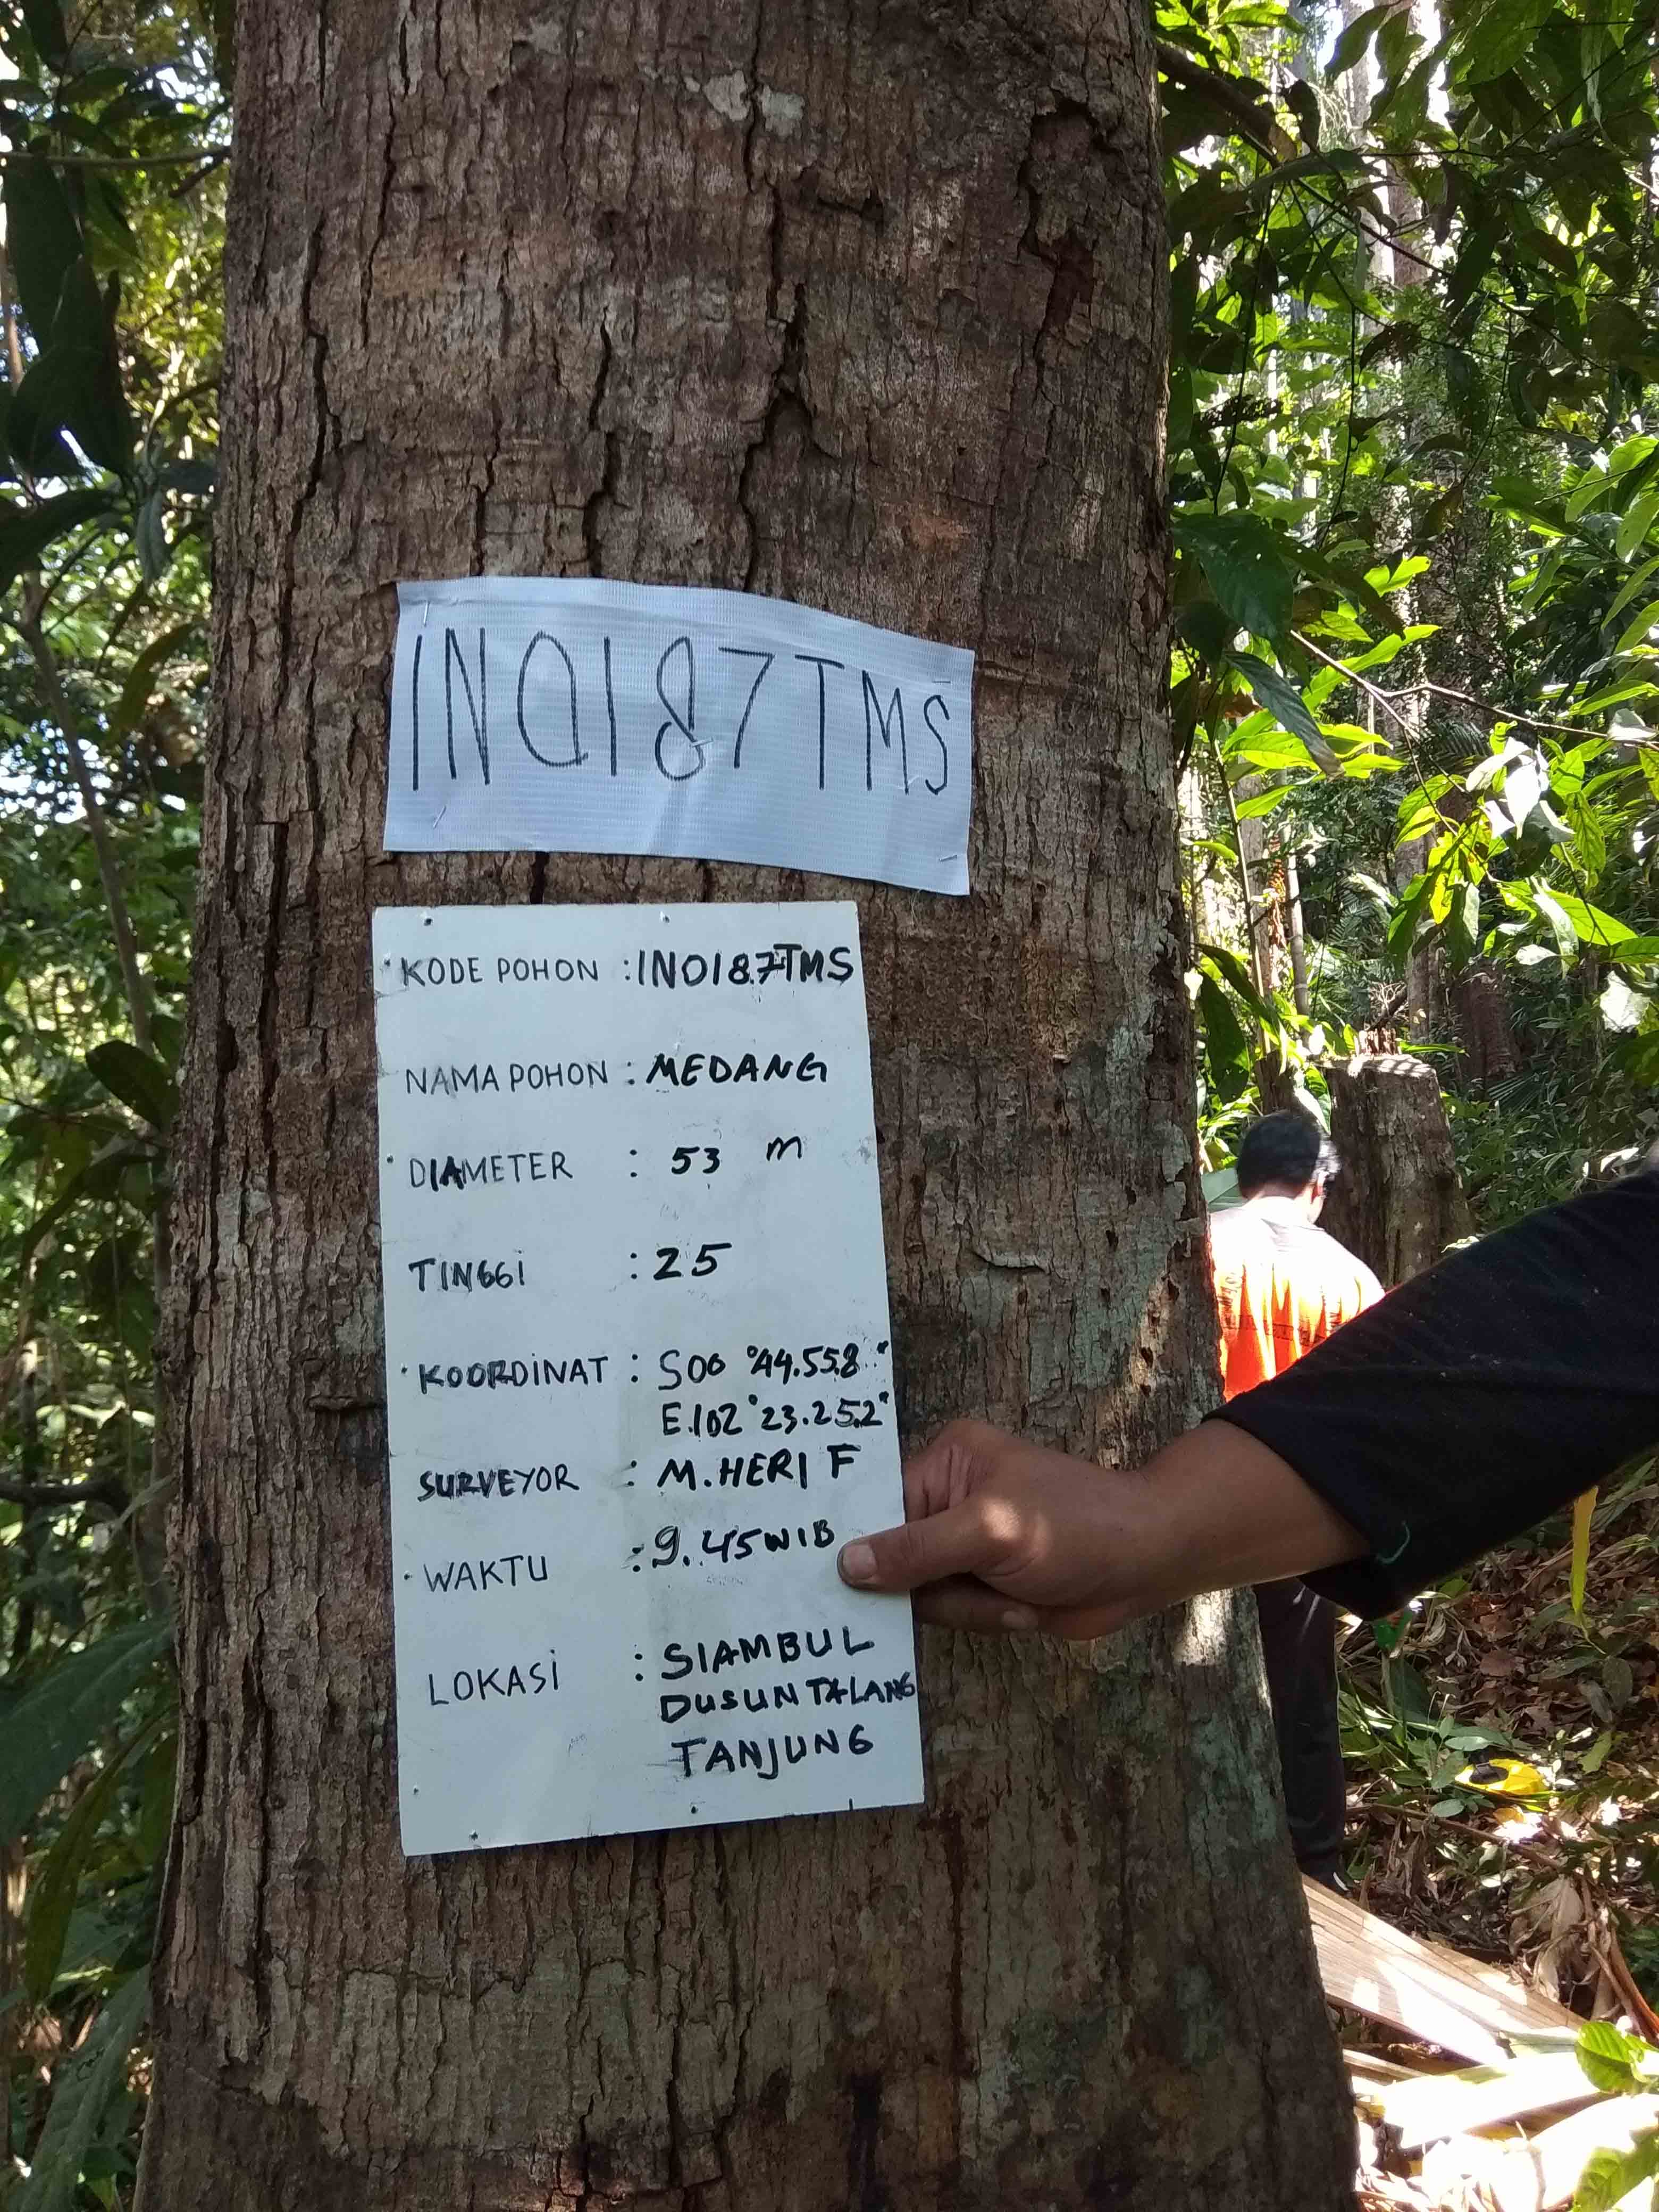 INO187TMS
KODE POHON : INO187TMS
NAMA POHON : MEDANG
DIAMETER : 53 m
TINGGI : 25
KOORDINAT : S00 °44.55.8"
E.102°23.25.2"
SURVEYOR : M.HERI F
WAKTU : 9.45 WIB
LOKASI : SIAMBUL
DUSUN TALANG
TANJUNG